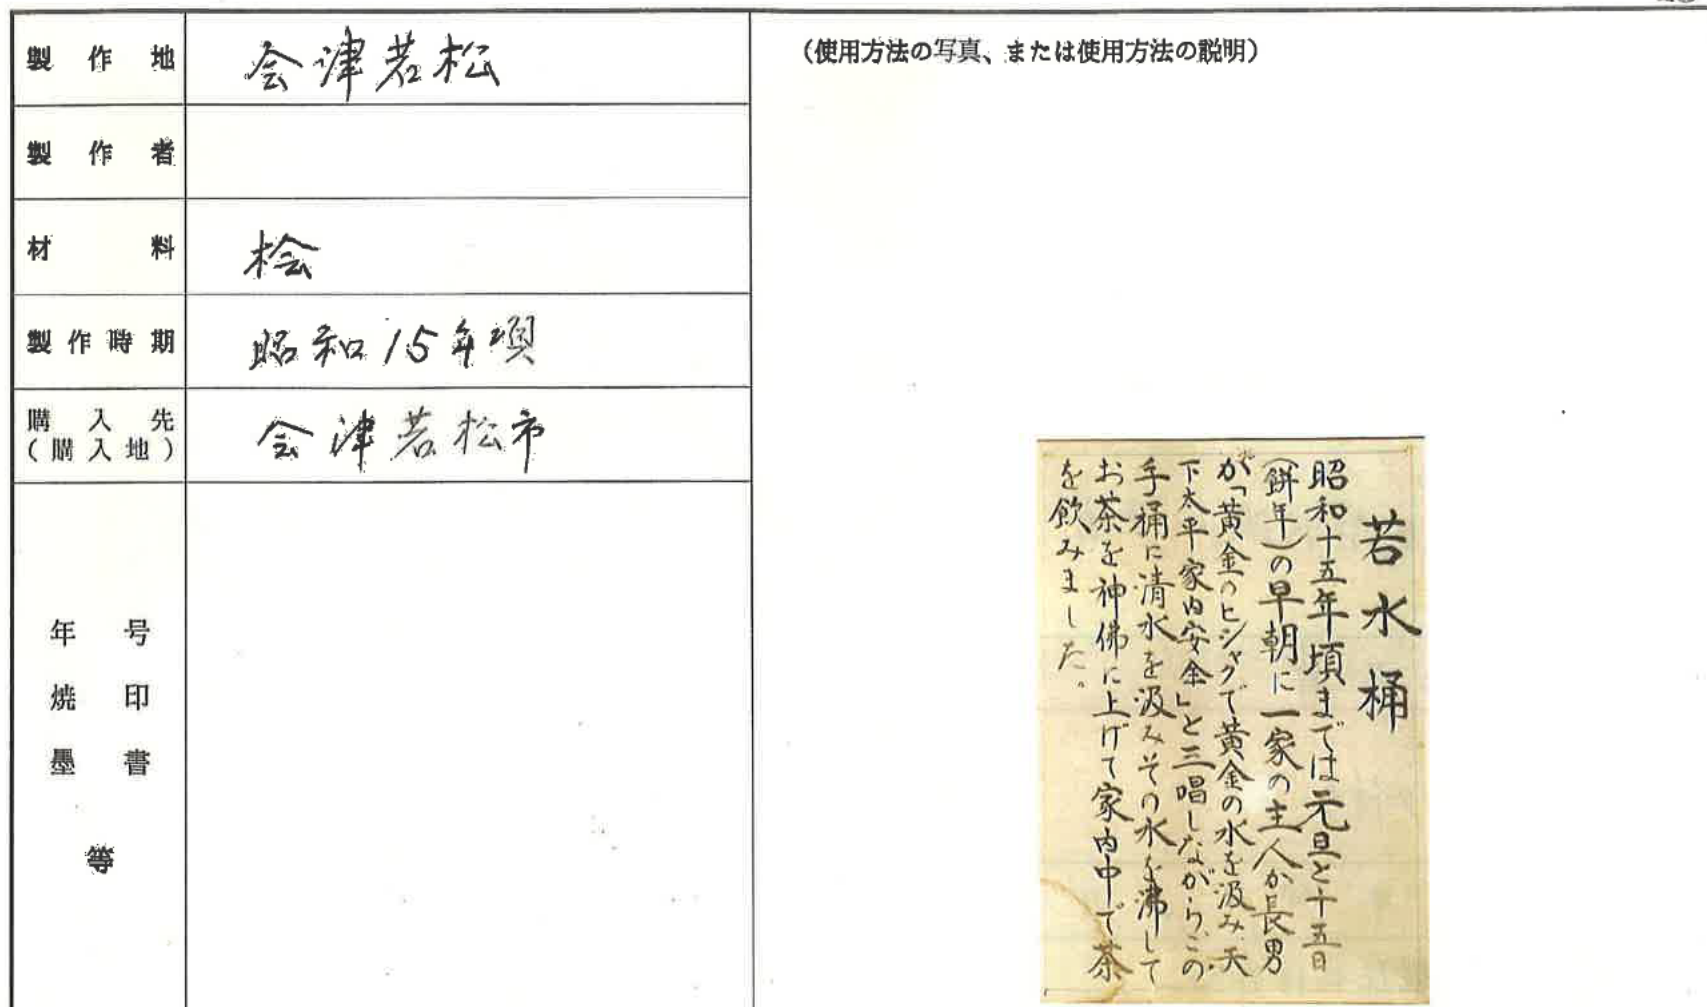 製作地 会津若松
製作者
材料 桧
製作時期 昭和15年頃
購入先
(購入地) 会津若松市
年号
焼印
墨書
等
(使用方法の写真、または使用方法の説明)
若水桶
昭和十五年頃までは元旦と十五日
(餅年)の早朝に一家の主人か長男
が「黄金のヒシャクで黄金の水を汲み、天
下太平家内安全」と三唱しながら、この
手桶に清水を汲みその水を沸して
お茶を神佛に上げて家内中で茶
を飲みました。